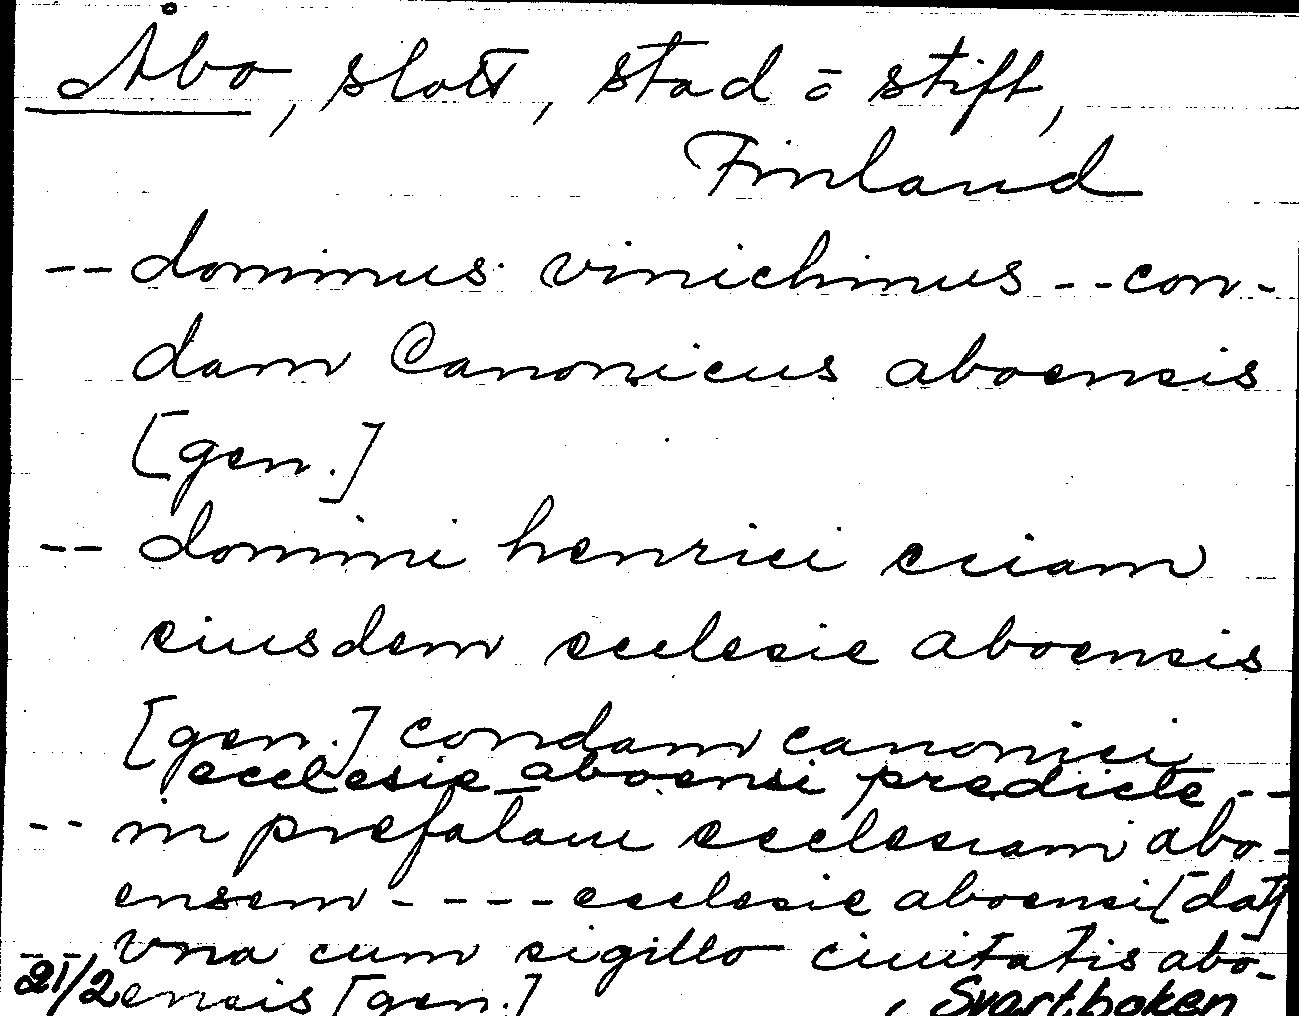 Åbo, slott, stad o stift,
Finland
-- dominus vinichinus -- con-
dam Canonicus aboensis
[gen.]
-- domini henrici eciam
eiusdem ecclesie aboensis
[gen.] condam canonici
ecclesie aboensi predicte --
-- in prefatam ecclesiam abo-
ensem ---- ecclesie aboensi [dat]
-- vna cum sigillo ciuitatis abo-
21/2 ensis [gen.] Svartboken